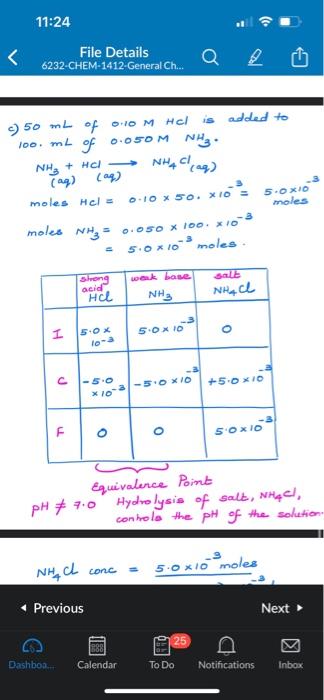 11:24
File Details
6232-CHEM-1412-General Ch...
c) 50 mL of 0.10 M HCl is added to
100. mL of 0.050 M NH₃.
NH₃ + HCl ⟶ NH₄Cl(aq)
(aq) (aq)
moles HCl = 0.10 × 50. × 10⁻³ = 5.0×10⁻³
moles
moles NH₃ = 0.050 × 100. × 10⁻³
= 5.0×10⁻³ moles.
strong acid HCl weak base NH₃ salt NH₄Cl
I 5.0 × 10⁻³ 5.0×10⁻³ 0
C -5.0 × 10⁻³ -5.0×10⁻³ +5.0×10⁻³
F 0 0 5.0×10⁻³
Equivalence Point
pH ≠ 7.0 Hydrolysis of salt, NH₄Cl,
controls the pH of the solution
NH₄Cl conc = 5.0×10⁻³ moles
Previous Next
25
Dashboa... Calendar To Do Notifications Inbox